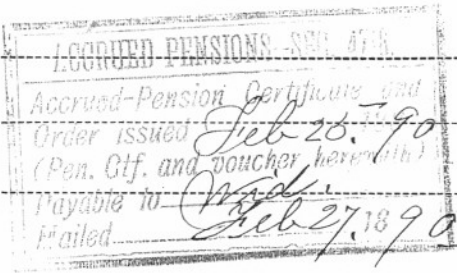 ACCRUED PENSIONS
Accrued-Pension Certificate and
Order issued Feb 26. 90
(Pen. Ctf. and voucher herewith)
Payable to Wid.
Mailed Feb 27. 1890